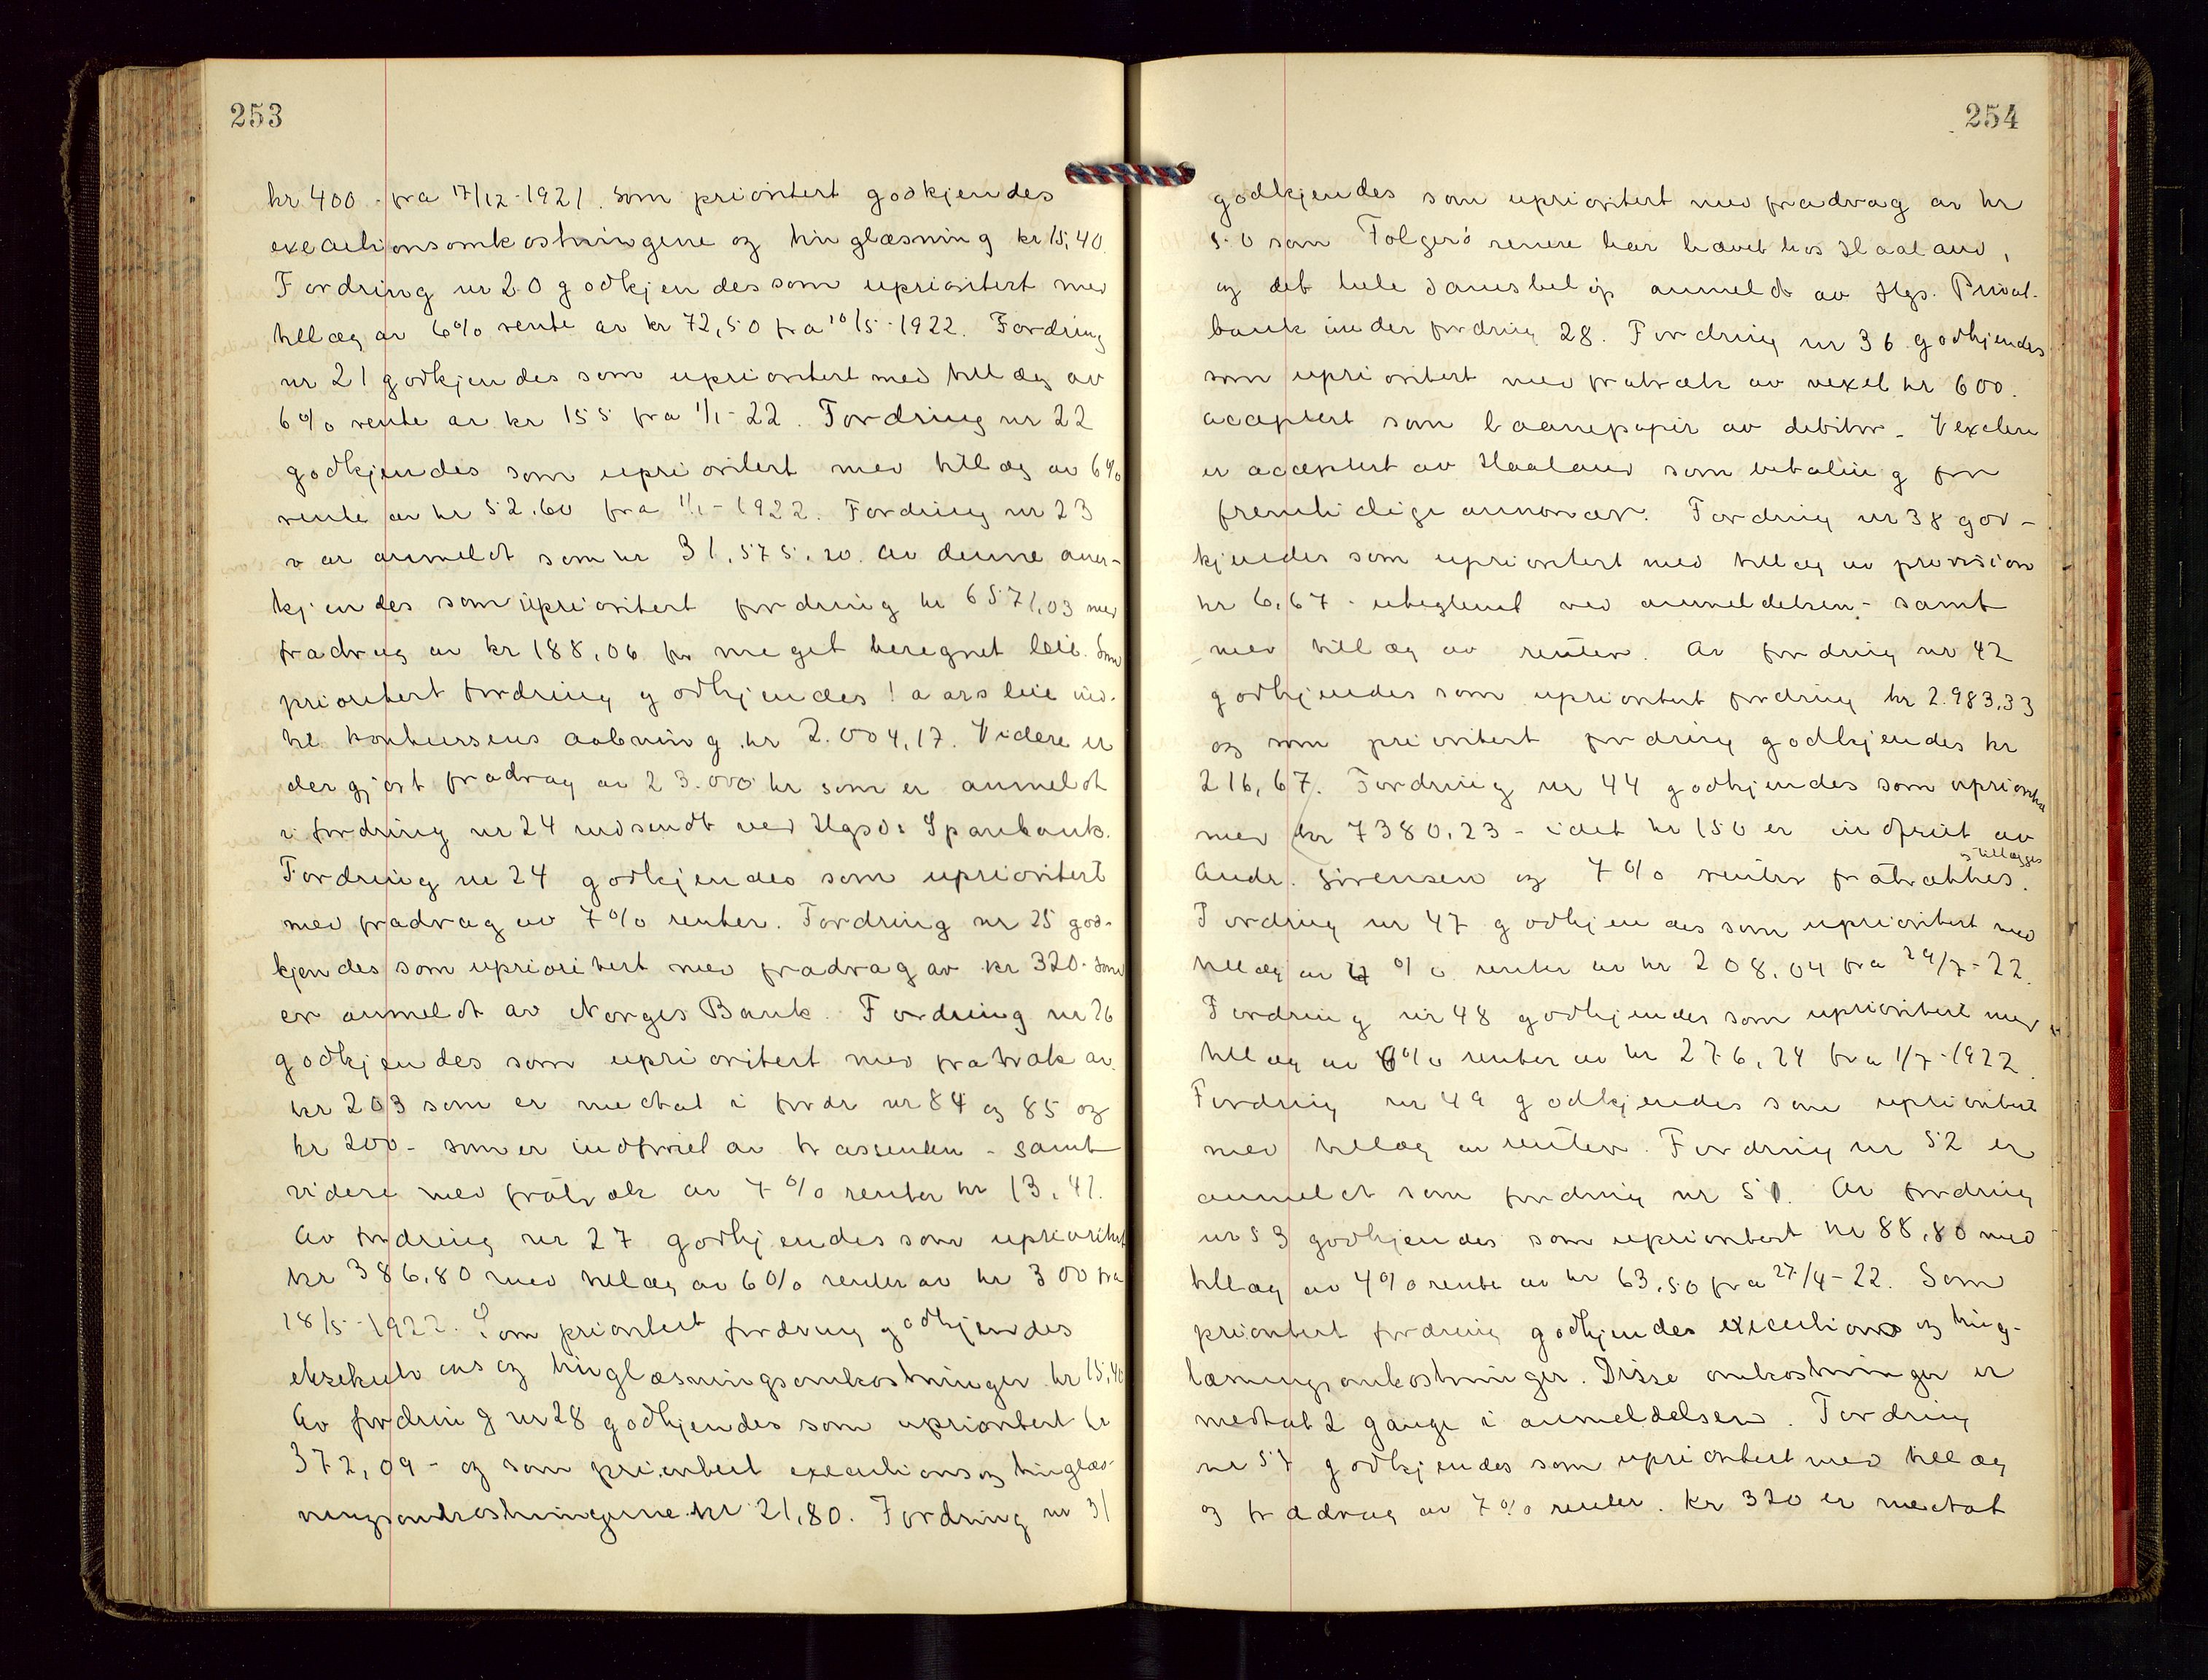 253
kr 400 - fra 17/12-1921. Som prioritert godkjendes
executionsomkostningene og tinglæsning kr 15,40
Fordring nr 20 godkjendes som uprioritert med
tillæg av 6% rente av kr 72,50 fra 10/5-1922. Fordring
nr 21 godkjendes som uprioritert med tillæg av
6% rente av kr 155 fra 1/1-22. Fordring nr 22
godkjendes som uprioritert med tillæg av 6%
rente av kr 52.60 fra 1/1-1922. Fordring nr 23
var anmeldt som kr 31.575.20. Av denne aner-
kjendes som uprioritert fordring kr 6571,03 med
fradrag av kr 188,06 for meget beregnet leie. Som
prioritert fordring godkjendes 1 aars leie ind-
til konkursens aabning kr 2.004,17. Videre er
der gjort fradrag av 23.000 kr som er anmeldt
i fordring nr 24 indsendt ved Hgsds Sparebank.
Fordring nr 24 godkjendes som uprioritert
med fradrag av 7% renter. Fordring nr 25 god-
kjendes som uprioritert med fradrag av kr 320- som
er anmeldt av Norges Bank. Fordring nr 26
godkjendes som uprioritert med fratræk av
kr 203 som er medtat i fordr nr 84 og 85 og
kr 200- som er indfriet av trassenten - samt
videre med fratræk av 7% renter kr 13,41.
Av fordring nr 27 godkjendes som uprioritert
kr 386,80 med tillæg av 6% renter av kr 300 fra
18/5-1922. Som prioritert fordring godkjendes
eksekutions og tinglæsningsomkostninger kr 15,40
Av fordring nr 28 godkjendes som uprioritert kr
372,09 - og som prioritert executions og tinglæs-
ningsomkostningerne kr 21,80. Fordring nr 31
254
godkjendes som uprioritert med fradrag av kr
50 som Følgerø senere har hævet hos Haaland,
og det hele laansbeløp anmeldt av Hgs. Privat-
bank under fordring 28. Fordring nr 36 godkjendes
som uprioritert med fratræk av vexel kr 600.
acceptert som laanepapir av debitor - Vexelen
er acceptert av Haaland som betaling for
fremtidige annoncer. Fordring nr 38 god-
kjendes som uprioritert med tillæg av provision
kr 6,67 - uteglemt ved anmeldelsen - samt
med tillæg av renter. Av fordring nr 42
godkjendes som uprioritert fordring kr 2.983,33
og som prioritert fordring godkjendes kr
216,67. Fordring nr 44 godkjendes som uprioritert
med kr 7380,23 - idet kr 150 er indfriet av
og tillægges
Andr. Sivensen og 7% renter fratrækkes.
Fordring nr 47 godkjendes som uprioritert med
tillæg av % renter av kr 208,04 fra 29/7-22.
Fordring nr 48 godkjendes som uprioritert med
tillæg av 6% renter av kr 276,24 fra 1/7-1922.
Fordring nr 49 godkjendes som uprioritert
med tillæg av renter. Fordring nr 52 er
anmeldt som fordring nr 51. Av fordring
nr 53 godkjendes som uprioritert kr 88,80 med
tillæg av 4% rente av kr 63,50 fra 27/4-22. Som
prioritert fordring godkjendes executions og ting-
læsningsomkostninger. Disse omkostninger er
medtat 2 gange i anmeldelsen. Fordring
nr 57 godkjendes som uprioritert med tillæg
og fradrag av 7% renter. Kr 320 er medtat